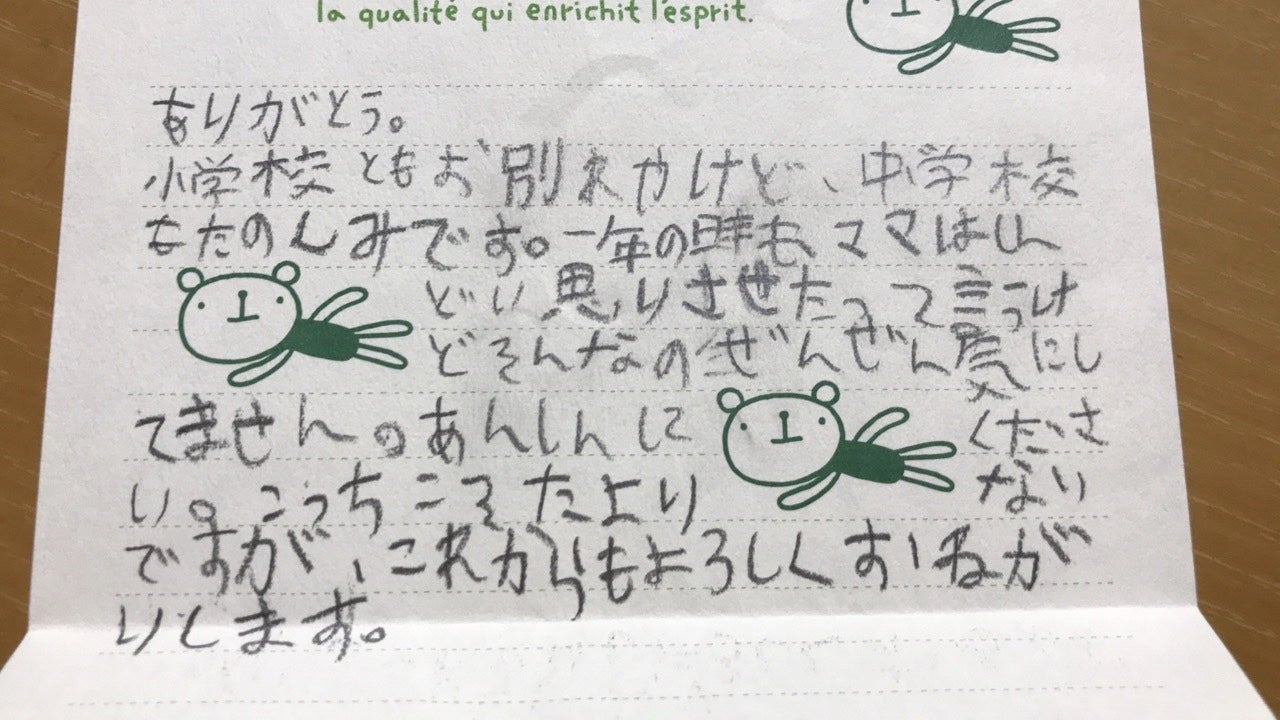 la qualité qui enrichit l'esprit.
ありがとう。
小学校ともお別れやけど、中学校
なたのしみです。一年の時も、ママはしん
どい思いさせたって言うけ
どそんなのぜんぜん気にし
てません。あんしんに
くださ
い。こっちこそたより
ない
ですが、これからもよろしくおねが
いします。